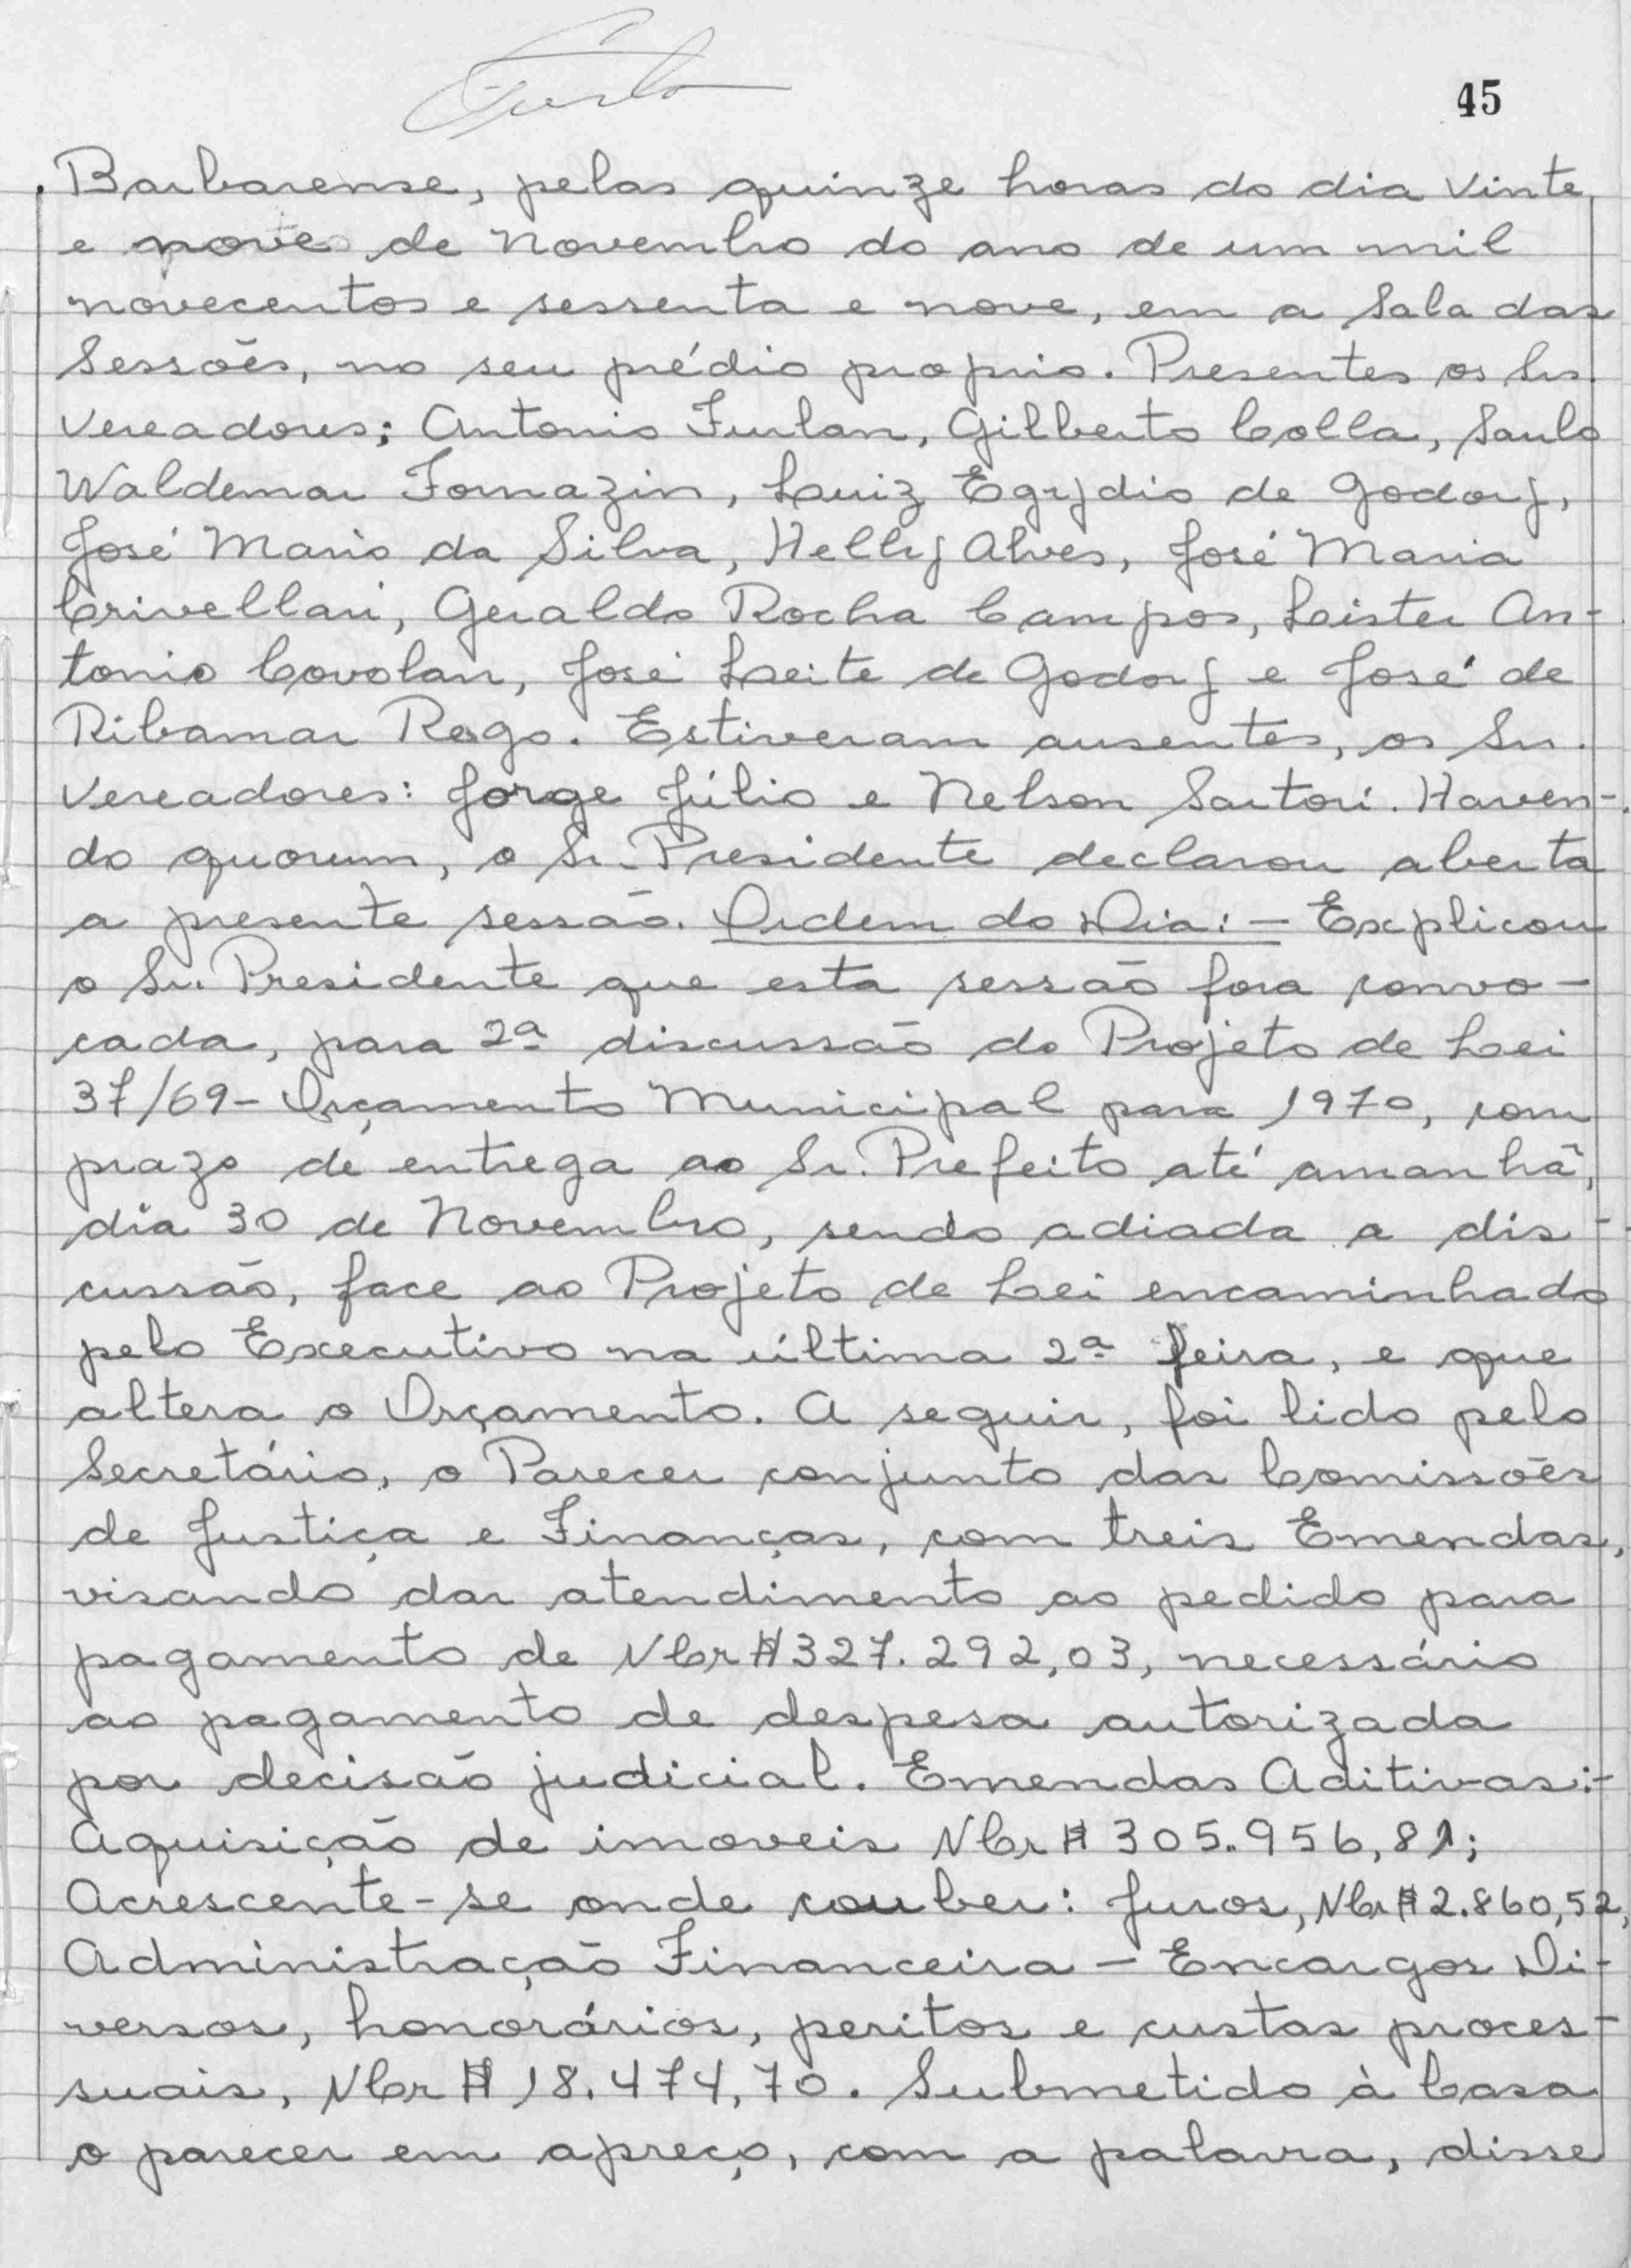 45
Barbarense, pelas quinze horas do dia vinte
e nove de Novembro do ano de um mil
novecentos e sessenta e nove, em a Sala das
Sessões, no seu prédio proprio. Presentes os Srs.
Vereadores; Antonio Furlan, Gilberto Colla, Saulo
Waldemar Fornazin, Luiz Egydio de Godoy,
José Mario da Silva, Helly Alves, José Maria
Crivellari, Geraldo Rocha Campos, Leister An-
tonio Covolan, José Leite de Godoy e José de
Ribamar Rego. Estiveram ausentes, os Srs.
Vereadores: Jorge Júlio e Nelson Sartori. Haven-
do quorum, o Sr. Presidente declarou aberta
a presente sessão. Ordem do Dia: - Explicou
o Sr. Presidente que esta sessão fora convo-
cada, para 2ª discussão do Projeto de Lei
37/69 - Orçamento Municipal para 1970, com
prazo de entrega ao Sr. Prefeito até amanhã,
dia 30 de Novembro, sendo adiada a dis-
cussão, face ao Projeto de Lei encaminhado
pelo Executivo na última 2ª feira, e que
altera o Orçamento. A seguir, foi lido pelo
Secretário, o Parecer conjunto das Comissões
de Justiça e Finanças, com treis Emendas,
visando dar atendimento ao pedido para
pagamento de NCr$ 327.292,03, necessário
ao pagamento de despesa autorizada
por decisão judicial. Emendas Aditivas:-
Aquisição de imoveis NCr$ 305.956,81;
Acrescente-se onde couber: Juros, NCr$ 2.860,52,
Administração Financeira - Encargos Di-
versos, honorários, peritos e custas proces-
suais, NCr$ 18.474,70. Submetido à Casa
o parecer em apreço, com a palavra, disse